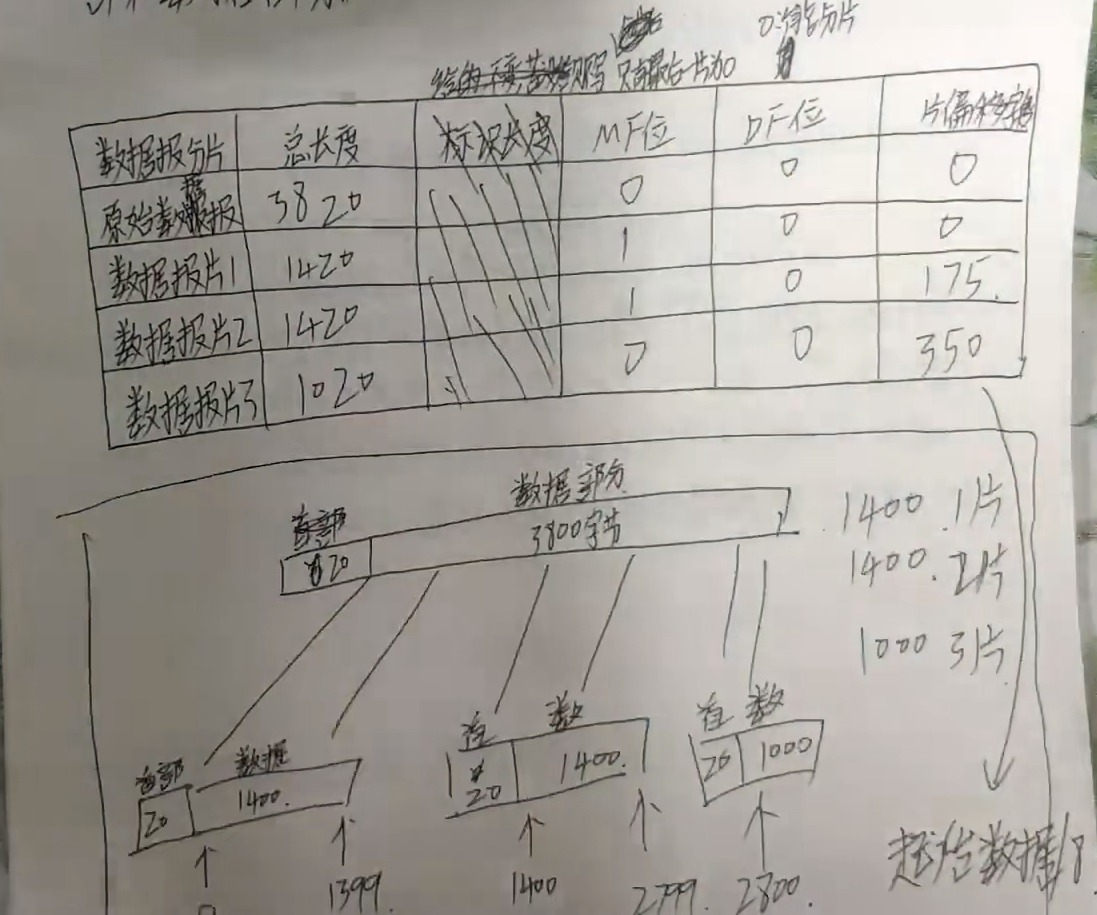 0:可分片
只有最后一片为0
数据报分片 总长度 标识长度 MF位 DF位 片偏移
原始数据报 3820 0 0 0
数据报片1 1420 1 0 0
数据报片2 1420 1 0 175
数据报片3 1020 0 0 350
数据部分
首部
20 3800字节
1400 1片
1400 2片
1000 3片
首部 数据
20 1400
首 数
20 1400
首 数
20 1000
0 1399 1400 2799 2800
起始数据/8